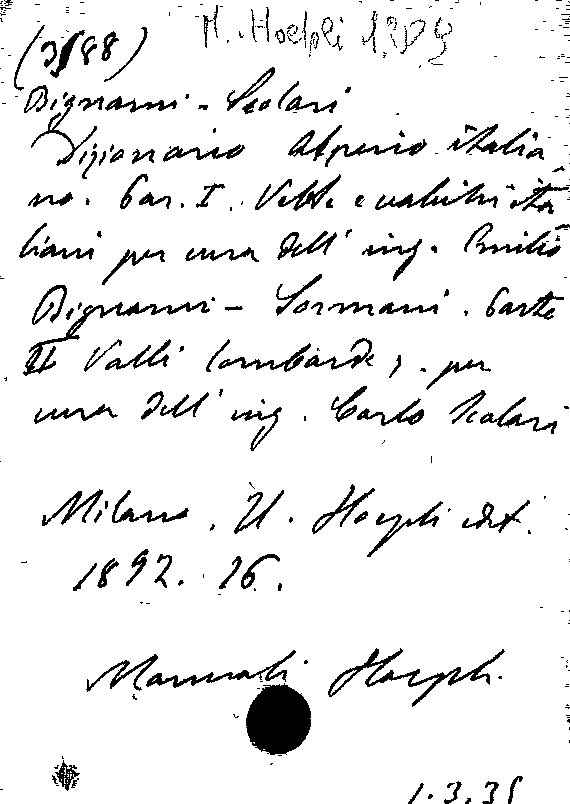 M. Hoepli 1209
(3188)
Bignami - Scolari
Dizionario Alpino italia
no. Par. I. Vette e valichi ita
liani per cura dell' ing. Emilio
Bignami - Sormani. Parte
II Valli lombarde, per
cura dell' ing. Carlo Scolari
Milano. U. Hoepli edit.
1892. 16.
Manuali Hoepli.
1.3.35